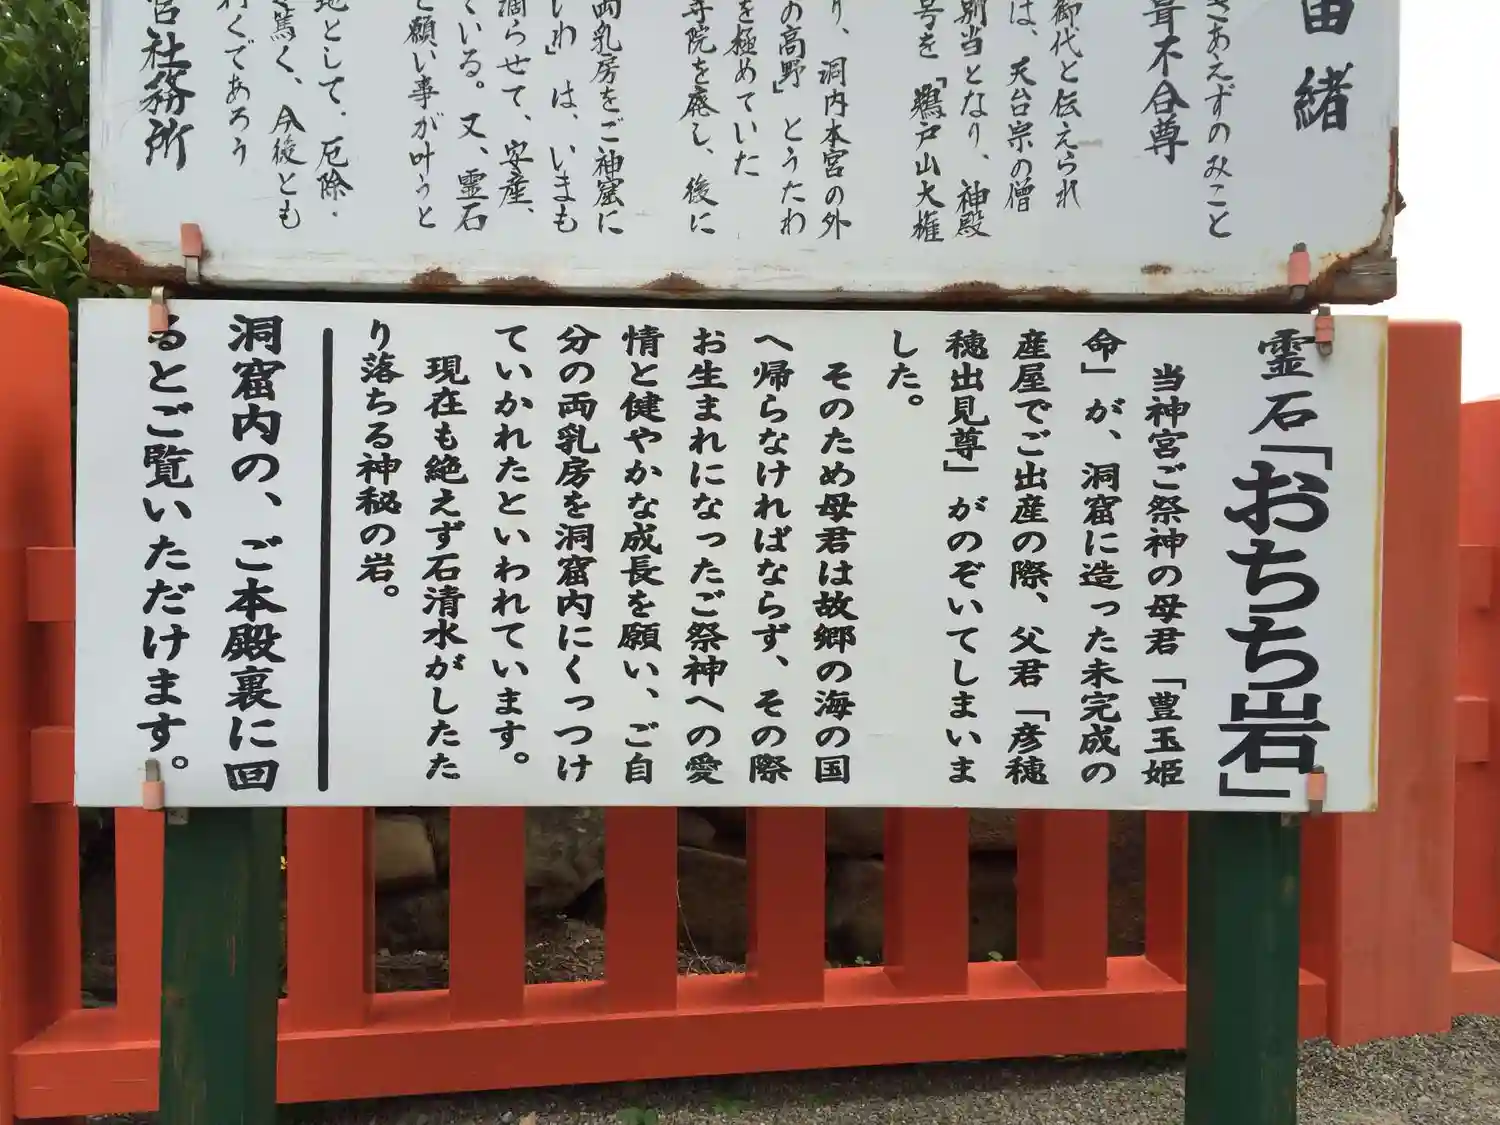 由緒
きあえずのみこと
葺不合尊
御代と伝えられ
は、天台宗の僧
別当となり、神殿
号を「鵜戸山大権
り、洞内本宮の外
の高野」とうたわ
を極めていた
寺院を廃し、後に
両乳房をご神窟に
いわ」は、いまも
滴らせて、安産、
ている。又、霊石
と願い事が叶うと
地として、厄除・
篤く、今後とも
行くであろう
宮社務所
霊石「おちち岩」
当神宮ご祭神の母君「豊玉姫
命」が、洞窟に造った未完成の
産屋でご出産の際、父君「彦穂
穂出見尊」がのぞいてしまいま
した。
そのため母君は故郷の海の国
へ帰らなければならず、その際
お生まれになったご祭神への愛
情と健やかな成長を願い、ご自
分の両乳房を洞窟内にくっつけ
ていかれたといわれています。
現在も絶えず石清水がしたた
り落ちる神秘の岩。
洞窟内の、ご本殿裏に回
るとご覧いただけます。